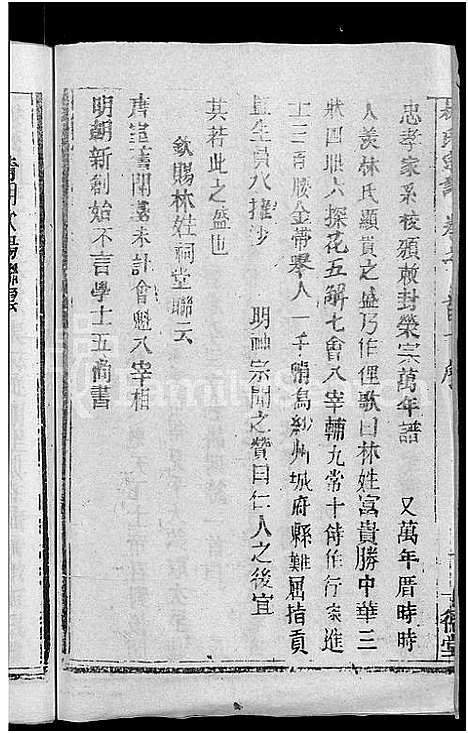 忠孝家系梭頒敕封榮宗萬年譜 又萬年厝時時
人羨林氏顯貴之盛乃作俚歌曰林姓富貴勝中華三
狀四鼎六探花五解七會八宰輔九常十侍作行家進
士三百勝金帶舉人一千賽烏紗州城府縣難屈指貢
監生員水推沙 明神宗聞之贊曰仁人之後宜
其若此之盛也
欽賜林姓祠堂聯云
唐室舊開基未計會魁八宰相
明朝新創始不言學士五尚書